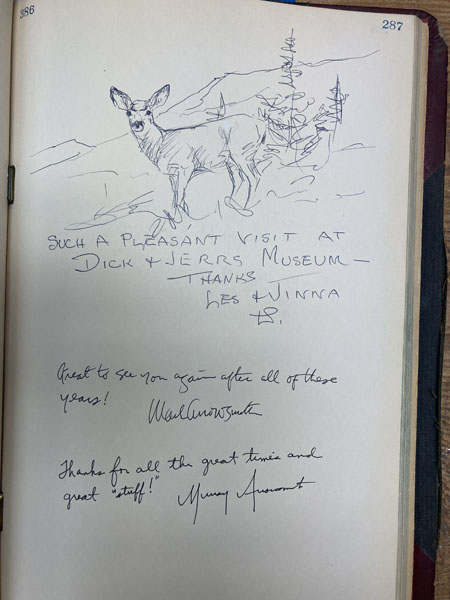 286
287
SUCH A PLEASANT VISIT AT
DICK & JERRS MUSEUM —
THANKS
LES & JINNA
Great to see you again after all of these
years!
Thanks for all the great times and
great "stuff!"